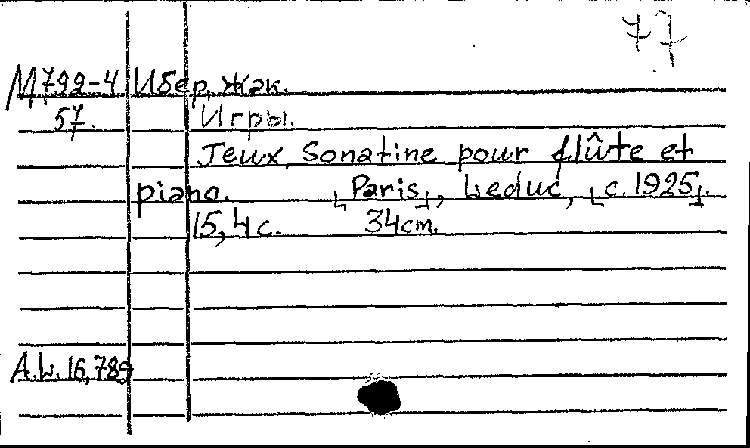 77
М792-4 Ибер, Жак.
57. Игры.
Jeux. Sonatine pour flûte et
piano. [Paris], Leduc, [c. 1925].
15, 4 с. 34cm.
A.L. 16,789